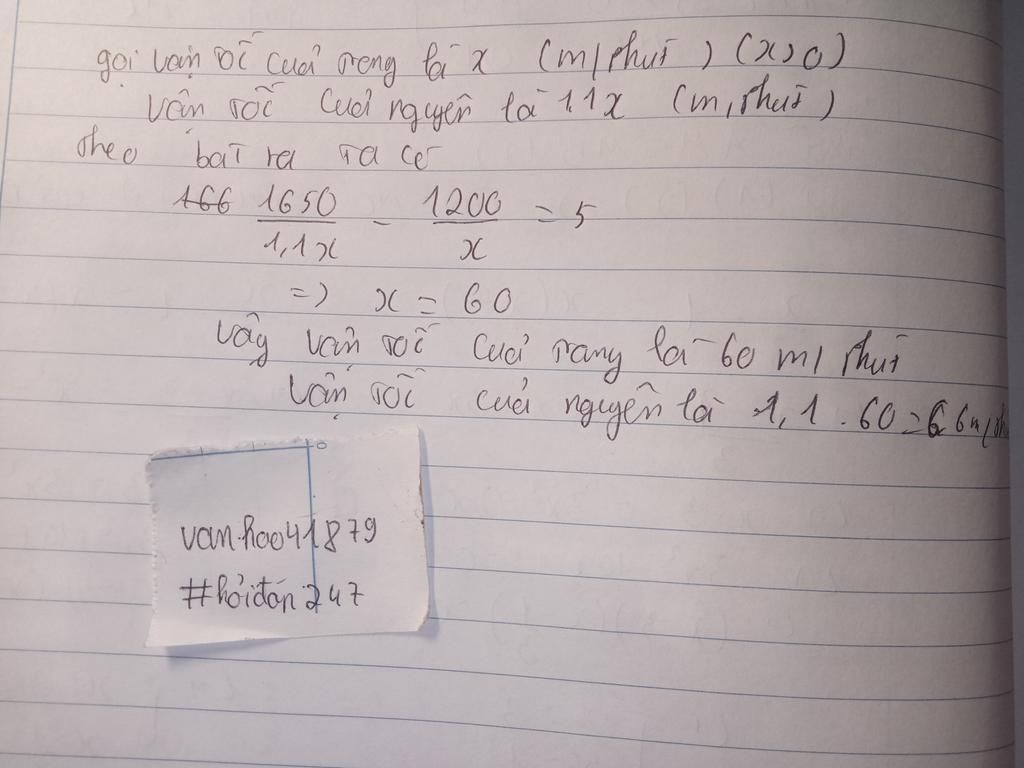 gọi vận tốc của trang là x (m/phút) (x>0)
vận tốc của nguyên là 1,1x (m/phút)
theo bài ra ta có
166 1650/1,1x - 1200/x = 5
=> x = 60
vậy vận tốc của trang là 60 m/phút
vận tốc của nguyên là 1,1.60=66m/ph
van.hoo41879
#hỏiđáp247